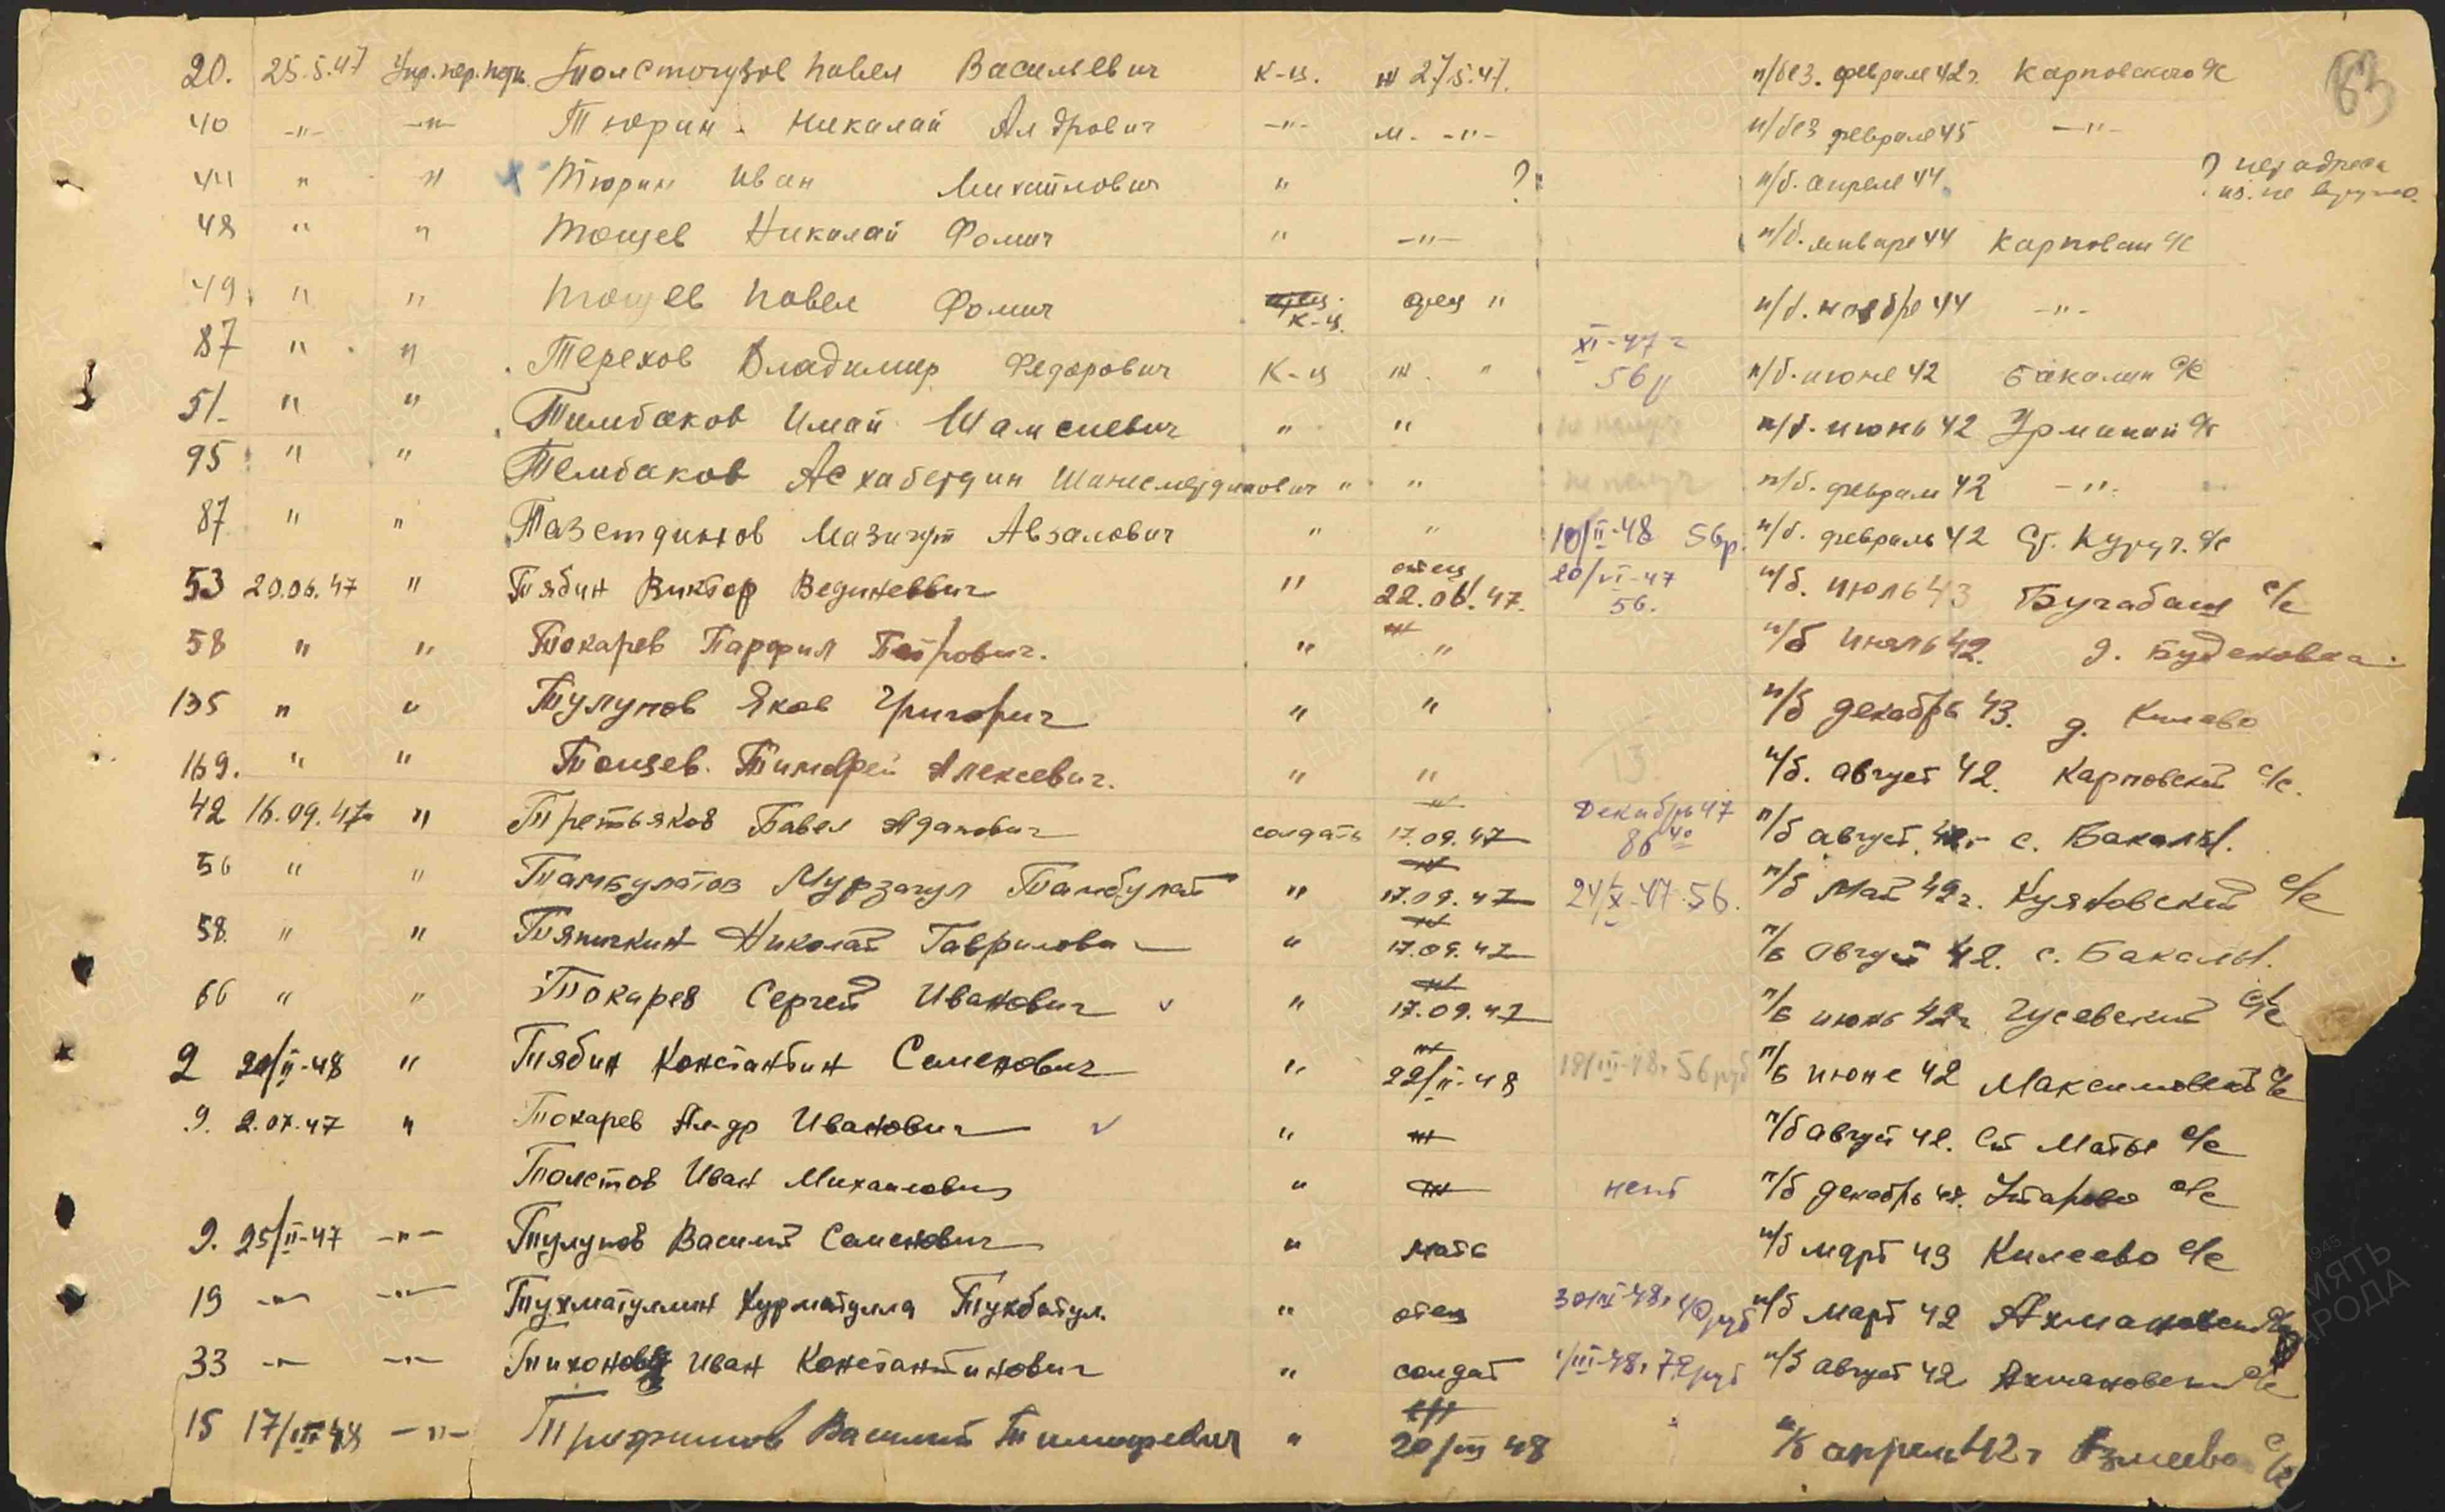 63
20. 25.5.47 Упр. пер. Толстогузов Павел Васильевич к-ц. ж 27.5.47. п/без. феврале 42 г. Карповского с/с
40 -"- -"- Тюрин Николай Ал дрович -"- м. -"- п/без феврале 45 -"-
44 " " х Тюрин Иван Михайлович " ? п/б. апреле 44 ? нет адреса
изв. не вручено.
48 " " Тощев Николай Фомич " -"- п/б. январе 44 Карповск с/с
49 " " Тощев Павел Фомич к-ц. отец " п/б. ноябре 44 -"-
87 " " Терехов Владимир Федорович к-ц ж. " XI-47 г 56 р п/б. июне 42 Бакалин с/с
51 " " Тимбаков Имай Шамсиевич " " не получ п/б. июнь 42 с/с
95 " " Тембаков " " не получ п/б. феврале 42 -"-
87 " " Тазетдинов Мазигут Авзалович " " 10/II-48 56р. п/б. февраль 42 Ст. Куруч. с/с
53 20.06.47 " Тябин Виктор " отец 22.06.47. 20/VI-47 56. п/б. июль 43 Бугабаш с/с
58 " " Токарев Парфил Петрович. " ж " п/б июль 42. д. Буденовка.
135 " " Тулупов Яков Григорич " " п/б декабрь 43. д. Килаво
169. " " Тощев. Тимофей Алексеевич. " " п/б. август 42. Карповский с/с.
42 16.09.47 " Третьяков Павел Адамович солдать ж 17.09.47 Декабрь 47 86 40 п/б август 42 г с. Бакалы.
56 " " Тамбулатов Мурзагул Тамбулат " ж 17.09.47 24/X-47 56. п/б Май 42 г. Куяновский с/с
58. " " Тяпичкин Николай Гаврилови " ж 17.09.47 п/б август 42. с. Бакалы.
66 " " Токарев Сергей Иванович ✓ " ж 17.09.47 п/б июнь 42 г Гусевский с/с
2 20/II-48 " Тябин Константин Семенович " ж 22/II-48 19/III-48г 56 руб п/б июне 42 Максимовский с/с
9. 2.07.47 " Токарев Ал-др Иванович ✓ " ж п/б август 42. Ст Маты с/с
Толстов Иван Михаилович " ж нет п/б декабрь 42. Утарово с/с
9. 25/II-47 -"- Тулупов Василий Семенович " мать п/б март 43 Килеево с/с
19 -"- -"- Тухматуллин Нурматулла Тукбатул. " отец 40 руб п/б март 42 Ахмановский с/с
33 -"- -"- Тихонов Иван Константинович " солдат 1/III-48г 72 руб п/б август 42 Ахмановский с/с
15 17/III 48 -"- Трофимов Василий Тимофеевич " 20/III 48 п/б апрель 42 г с/с